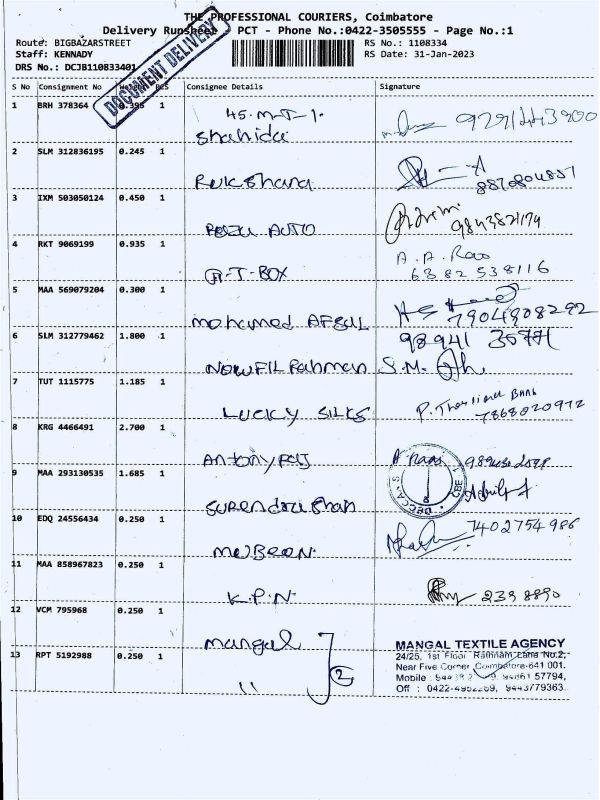 THE PROFESSIONAL COURIERS, Coimbatore
Delivery Runsheet - PCT - Phone No.:0422-3505555 - Page No.:1
Route: BIGBAZARSTREET
RS No.: 1108334
Staff: KENNADY
RS Date: 31-Jan-2023
DRS No.: DCJB110833401
DOCUMENT DELIVERY
S No Consignment No PCS Consignee Details Signature
1 BRH 378364 0.395 1 45.M-T-1.
Shahida
2 SLM 312836195 0.245 1
Rukshana
3 IXM 503050124 0.450 1
9843821174
AUTO
4 RKT 9069199 0.935 1 A.A. Rao
A-T-BOX 6382538116
5 MAA 569079204 0.300 1
Mohamed AFSUL 7904908292
6 SLM 312779462 1.800 1 98941
NOWFIL Rahman S.M.
7 TUT 1115775 1.185 1
LUCKY SILKS 7868020972
8 KRG 4466491 2.700 1
Antony
9 MAA 293130535 1.685 1
DECCAN CBE
10 EDQ 24556434 0.250 1 7402754986
11 MAA 858967823 0.250 1
K.P.N. 2398890
12 VCM 795968 0.250 1
Mangal
MANGAL TEXTILE AGENCY
13 RPT 5192988 0.250 1 24/25, 1st Floor Rathnam Lane No.2,
2
Near Five Corner Coimbatore-641 001.
" Mobile 57794,
Off : 0422- 9443779363.